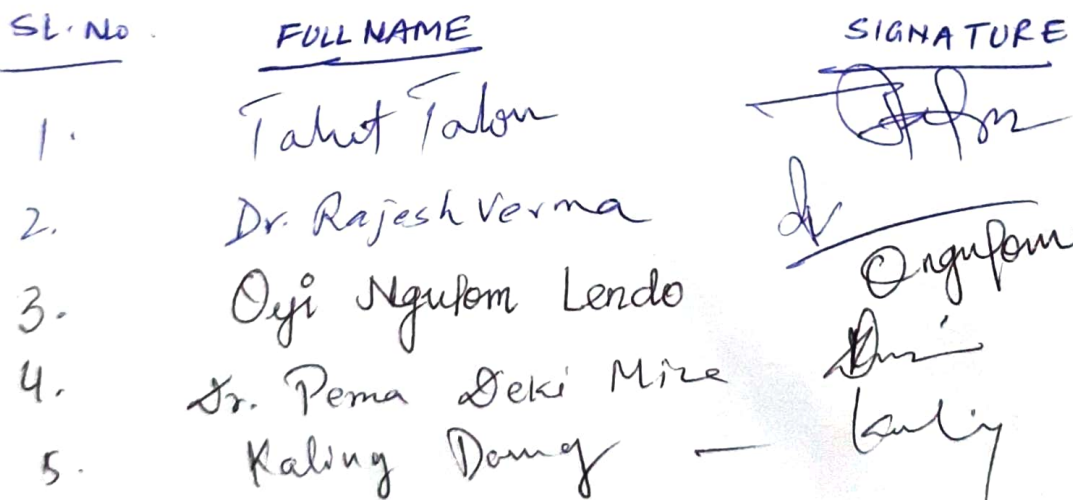 SL. No. FULL NAME SIGNATURE
1. Tahut Talom
2. Dr. Rajesh Verma
3. Oyi Ngupom Lendo Ongupom
4. Dr. Pema Deki Mize
5. Kaling Dang — Kaling